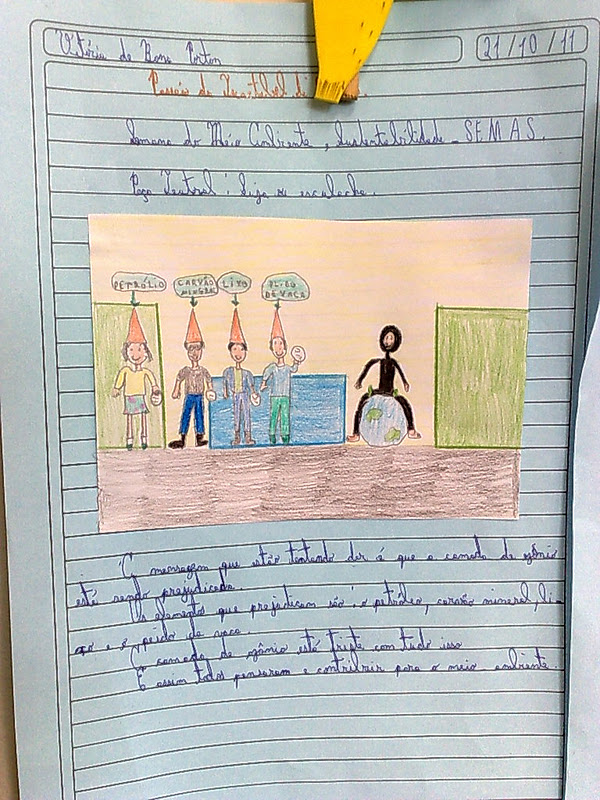 Vitória de Bona Porton
21/10/11
Semana do Meio Ambiente, Sustentabilidade - SEMAS.
Peça Teatral: Seja ou
PETRÓLIO
CARVÃO MINERAL
LIXO
PLIDO DE VACA
A mensagem que estão tentando dar é que a camada de ozônio
está sendo prejudicada.
Os elementos que prejudicam são: o petróleo, carvão mineral, li-
xo e o peido de vaca.
A camada de ozônio está triste com tudo isso
E assim todos pensaram e contribuir para o meio ambiente